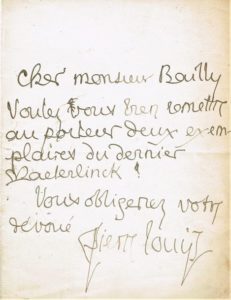 cher monsieur Bailly
Voulez vous bien remettre
au porteur deux exem
plaires du dernier
Maeterlinck !
Vous obligerez votre
dévoué
Pierre Louÿs